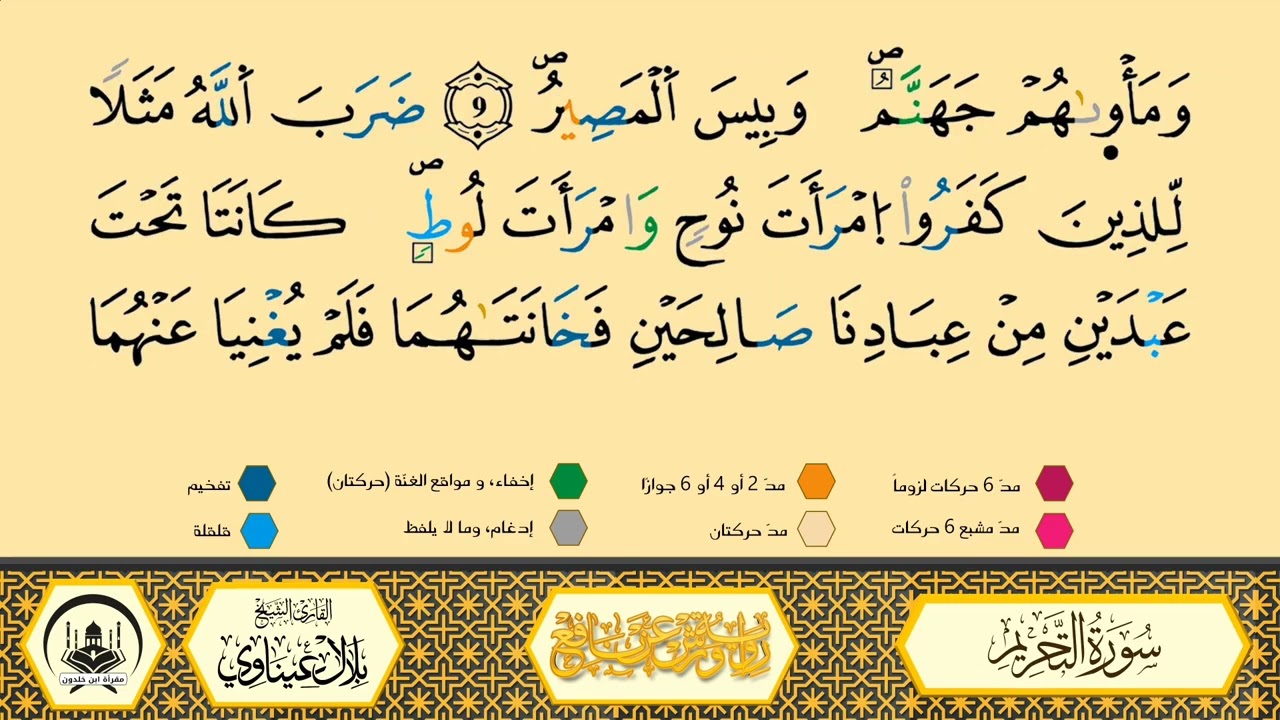 وَمَأْو۪ىٰهُمْ جَهَنَّمُۖ وَبِيسَ اَ۬لْمَصِيرُۖ 9 ضَرَبَ اَ۬للَّهُ مَثَلاٗ
لِّلذِينَ كَفَرُواْ اُ۪مْرَأَتَ نُوحٖ وَامْرَأَتَ لُوطٖۖ كَانَتَا تَحْتَ
عَبْدَيْنِ مِنْ عِبَادِنَا صَٰلِحَيْنِ فَخَانَتَٰهُمَا فَلَمْ يُغْنِيَا عَنْهُمَا
مدّ 6 حركات لزوماً
مدّ 2 أو 4 أو 6 جوازًا
إخفاء، و مواقع الغنّة (حركتان)
تفخيم
مدّ مشبع 6 حركات
مدّ حركتان
إدغام، وما لا يلفظ
قلقلة
سُورَةُ التَّحْرِيمِ
رواية ورش عن نافع
القارئ الشيخ
بلال عيناوي
مقرأة ابن خلدون